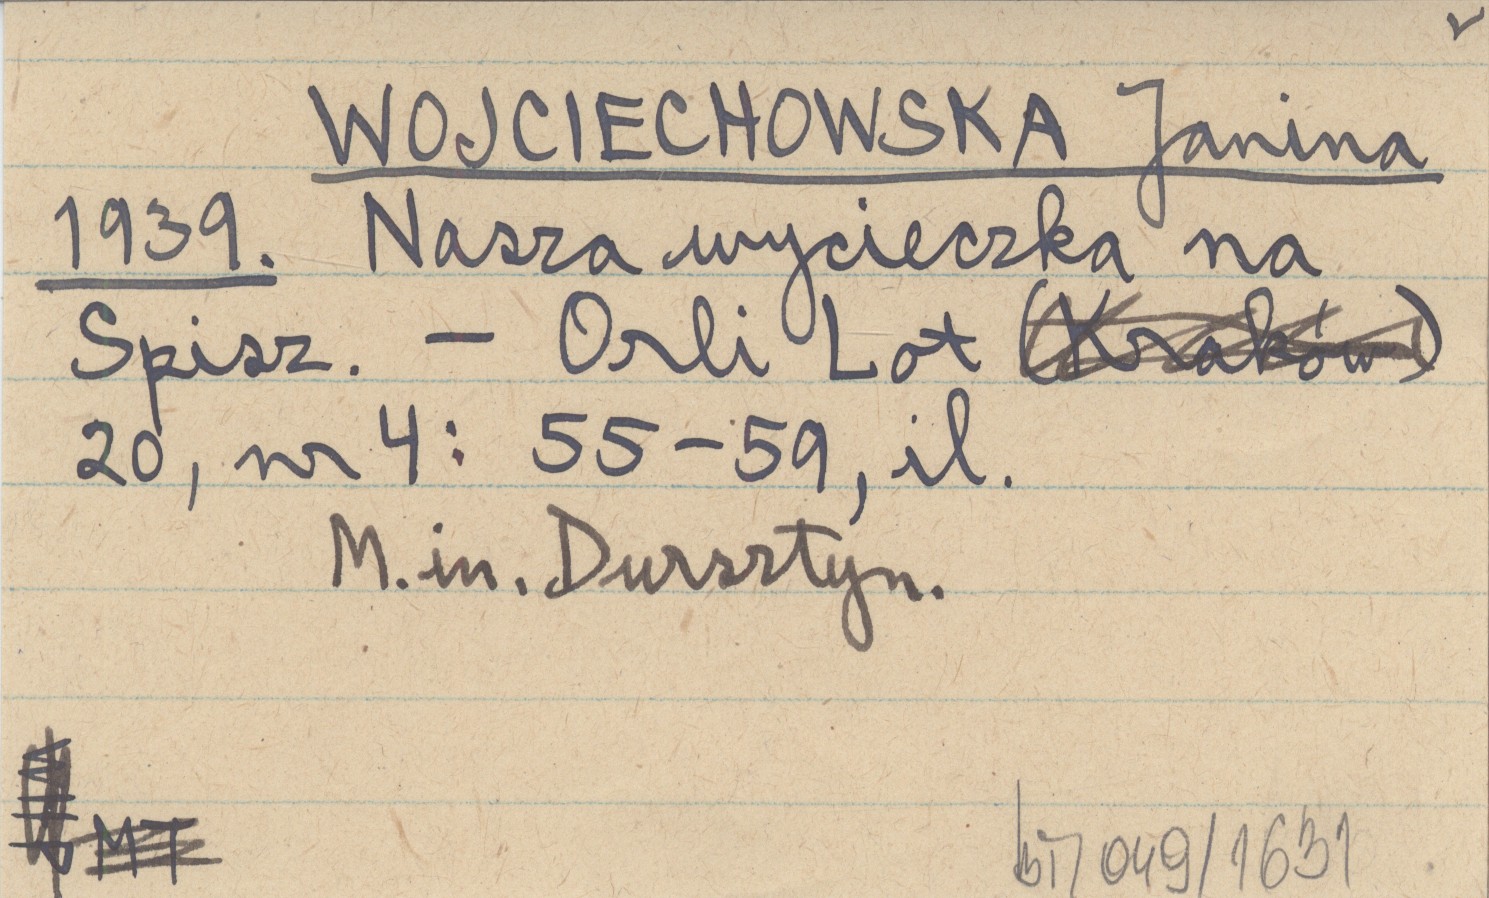 WOJCIECHOWSKA Janina
1939. Nasza wycieczka na
Spisz. - Orli Lot (Kraków)
20, nr 4: 55-59, il.
M.in. Dursztyn.
MT
049/1631